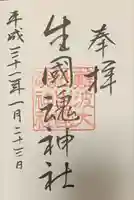 奉拝
生國魂神社
平成三十一年一月二十三日